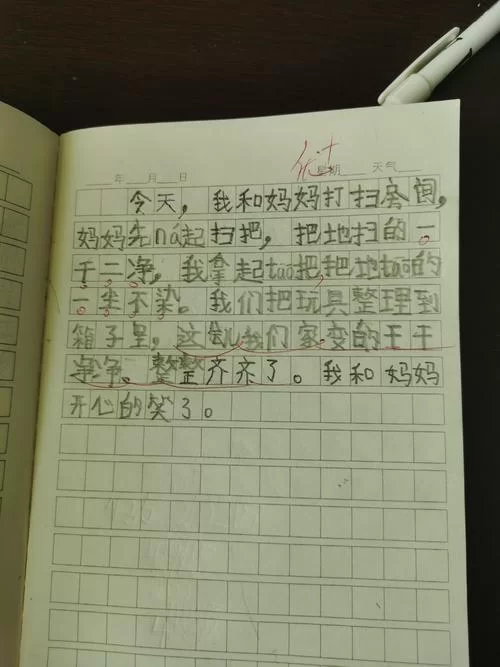 优+
年 月 日 星期 天气
今天，我和妈妈打扫房间，
妈妈先ná起扫把，把地扫的一
干二净，我拿起tuō把，把地tuō的
一尘不染。我们把玩具整理到
箱子里，这 我们家变的干干
净净、整整齐齐了。我和妈妈
开心的笑了。